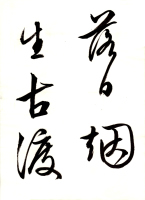 落日烟
生古渡